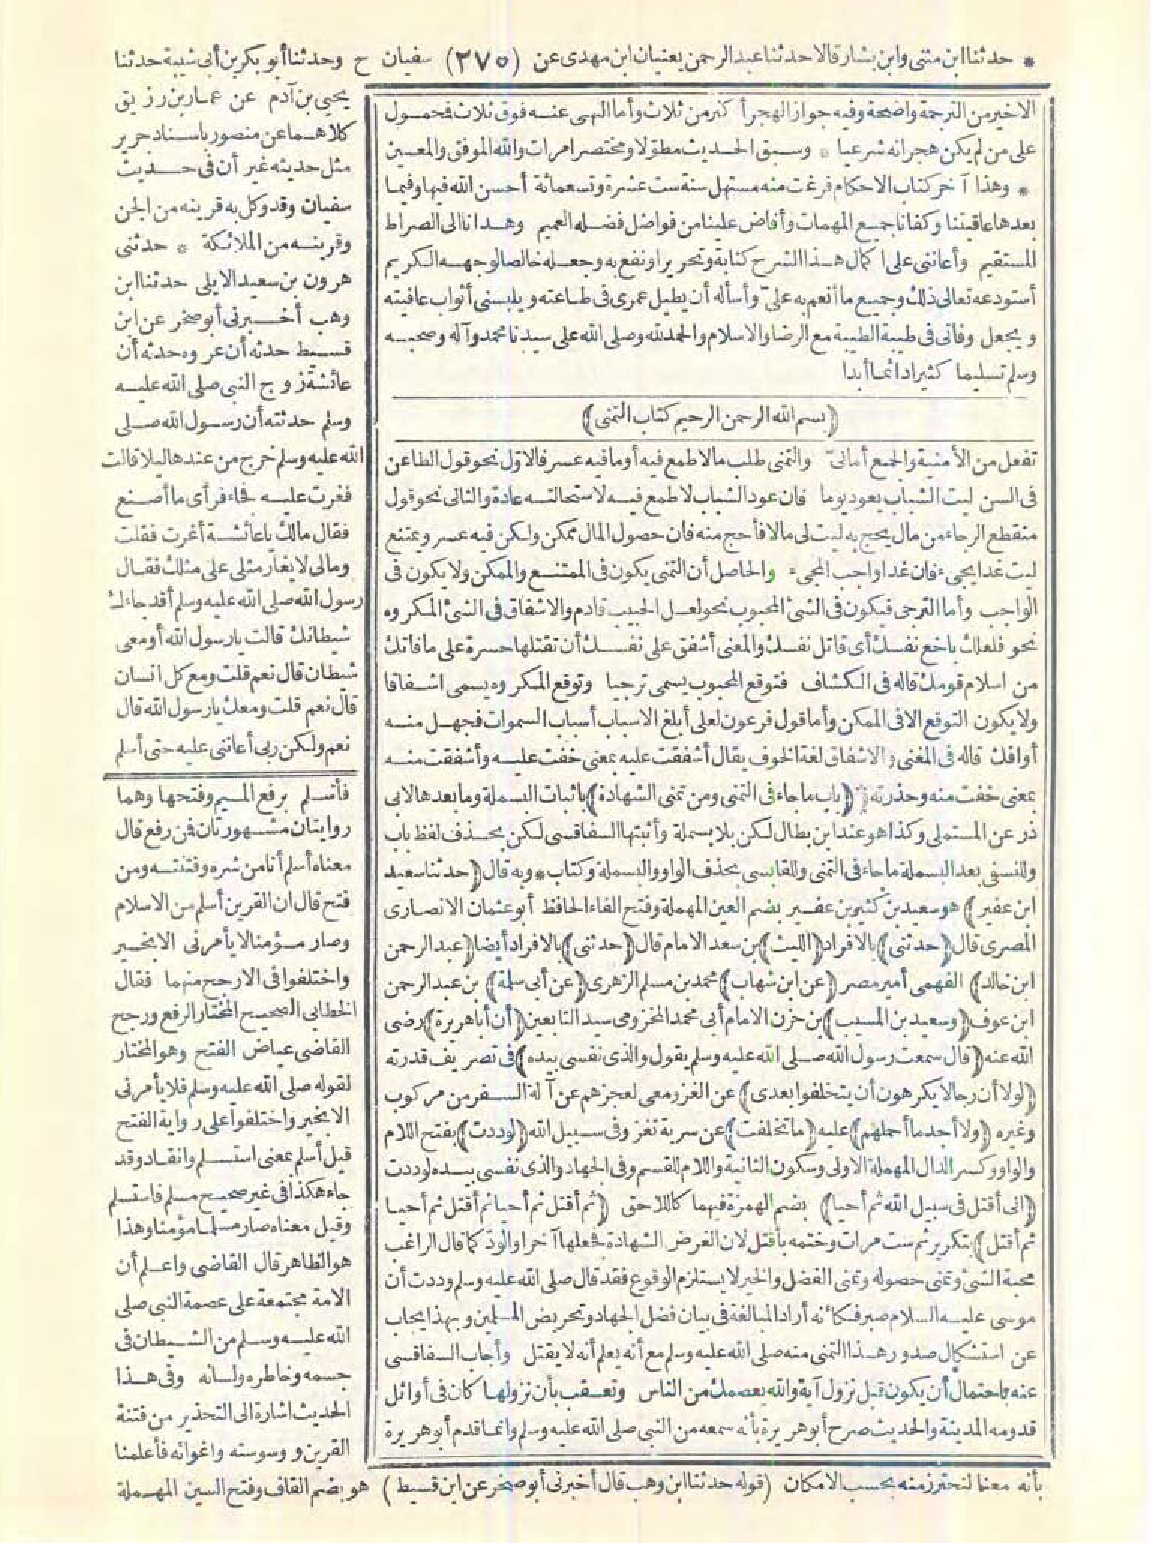 * حدثنا ابن مثنى وابن بشار قالا حدثنا عبد الرحمن يعنيان ابن مهدى عن (٢٧٥) سفيان ح وحدثنا أبو بكر بن أبى شيبة حدثنا
يحيى بن آدم عن عمار بن رزيق
كلاهما عن منصور باسناد جرير
مثل حديثه غير أن فى حديث
سفيان وقد وكل به قرينه من الجن
وقرينه من الملائكة * حدثنى
هرون بن سعيد الايلى حدثنا ابن
وهب أخبرنى أبو صخر عن ابن
قسيط حدثه أن عروه حدثه أن
عائشة زوج النبى صلى الله عليه
وسلم حدثته أن رسول الله صلى
الله عليه وسلم خرج من عندها ليلا قالت
فغرت عليه فجاء فرأى ما أصنع
فقال مالك ياعائشة أغرت فقلت
ومالى لا يغار مثلى على مثلك فقال
رسول الله صلى الله عليه وسلم أقد جاءك
شيطانك قالت يارسول الله أو معى
شيطان قال نعم قلت ومع كل انسان
قال نعم قلت ومعك يارسول الله قال
نعم ولكن ربى أعاننى عليه حتى أسلم
الاخير من الترجمة واضحة وفيه جواز الهجر أكثر من ثلاث وأما النهى عنه فوق ثلاث فمحمول
على من لم يكن هجرانه شرعيا * وسبق الحديث مطولا ومختصرا مرات والله الموفق والمعين
* وهذا آخر كتاب الاحكام فرغت منه مستهل سنة ست عشرة وتسعمائة أحسن الله فيها وفيما
بعدها عاقبتنا وكفانا جميع المهمات وأفاض علينا من فواضل فضله العميم وهدانا الى الصراط
المستقيم وأعاننى على اكمال هذا الشرح كتابة وتحريرا ونفع به وجعله خالصا لوجهه الكريم
أستودعه تعالى ذلك وجميع ما أنعم به علىّ وأسأله أن يطيل عمرى فى طاعته ويلبسنى أثواب عافيته
ويجعل وفاتى فى طيبة الطيبة مع الرضا والاسلام والحمدلله وصلى الله على سيدنا محمد وآله وصحبه
وسلم تسليما كثيرا دائما أبدا
(بسم الله الرحمن الرحيم كتاب التمنى)
تفعل من الأمنية والجمع أمانىّ والتمنى طلب مالا طمع فيه أو مافيه عسر فالاول نحو قول الطاعن
فى السن ليت الشباب يعود يوما فان عود الشباب لاطمع فيه لاستحالته عادة والثانى نحو قول
منقطع الرجاء من مال يحج به ليت لى مالا فأحج منه فان حصول المال ممكن ولكن فيه عسر ويمتنع
ليت غدا يجىء فان غدا واجب المجىء والحاصل أن التمنى يكون فى الممتنع والممكن ولا يكون فى
الواجب وأما الترجى فيكون فى الشئ المحبوب نحو لعل الحبيب قادم والاشفاق فى الشئ المكروه
نحو فلعلك باخع نفسك أى قاتل نفسك والمعنى أشفق على نفسك أن تقتلها حسرة على مافاتك
من اسلام قومك قاله فى الكشاف فتوقع المحبوب يسمى ترجيا وتوقع المكروه يسمى اشفاقا
ولا يكون التوقع الا فى الممكن وأما قول فرعون لعلى أبلغ الاسباب أسباب السموات فجهل منه
أو افك قاله فى المغنى والاشفاق لغة الخوف يقال أشفقت عليه بمعنى خفت عليه وأشفقت منه
بمعنى خفت منه وحذرته (باب ماجاء فى التمنى ومن تمنى الشهادة) باثبات البسملة ومابعدها لابى
ذر عن المستملى وكذا هو عند ابن بطال لكن بلا بسملة وأثبتها السفاقسى لكن بحذف لفظ باب
وللنسفى بعد البسملة ماجاء فى التمنى وللقابسى بحذف الواو والبسملة وكتاب * وبه قال (حدثنا سعيد
ابن عفير) هو سعيد بن كثير بن عفير بضم العين المهملة وفتح الفاء الحافظ أبو عثمان الانصارى
المصرى قال (حدثنى) بالافراد (الليث) بن سعد الامام قال (حدثنى) بالافراد أيضا (عبد الرحمن
ابن خالد) الفهمى أمير مصر (عن ابن شهاب) محمد بن مسلم الزهرى (عن أبى سلمة) بن عبد الرحمن
ابن عوف (وسعيد بن المسيب) بن حزن الامام أبى محمد المخزومى سيد التابعين (أن أبا هريرة) رضى
الله عنه (قال سمعت رسول الله صلى الله عليه وسلم يقول والذى نفسى بيده) فى تصريف قدرته
(لولا أن رجالا يكرهون أن يتخلفوا بعدى) عن الغزو معى لعجزهم عن آلة السفر من مركوب
وغيره (ولا أجد ما أحملهم) عليه (ما تخلفت) عن سرية تغزو فى سبيل الله (لوددت) بفتح اللام
والواو وكسر الدال المهملة الاولى وسكون الثانية واللام للقسم وفى الجهاد والذى نفسى بيده لوددت
(انى أقتل فى سبيل الله ثم أحيا) بضم الهمزة فيهما كاللاحق (ثم أقتل ثم أحيا ثم أقتل ثم أحيا
ثم أقتل) بتكرير ثم ست مرات وختمه بأقتل لان الغرض الشهادة فجعلها آخرا والود كما قال الراغب
محبة الشئ وتمنى حصوله وتمنى الفضل والخير لا يستلزم الوقوع فقد قال صلى الله عليه وسلم وددت أن
موسى عليه السلام صبر فكأنه أراد المبالغة فى بيان فضل الجهاد وتحريض المسلمين وبهذا يجاب
عن استشكال صدور هذا التمنى منه صلى الله عليه وسلم مع أنه يعلم أنه لا يقتل وأجاب السفاقسى
عنه باحتمال أن يكون قبل نزول آية والله يعصمك من الناس وتعقب بأن نزولها كان فى أوائل
قدومه المدينة والحديث صرح أبو هريرة بأنه سمعه من النبى صلى الله عليه وسلم وانما قدم أبو هريرة
فأسلم برفع الميم وفتحها وهما
روايتان مشهورتان فمن رفع قال
معناه أسلم أنا من شره وفتنته ومن
فتح قال ان القرين أسلم من الاسلام
وصار مؤمنا لا يأمرنى الا بخير
واختلفوا فى الارجح منهما فقال
الخطابى الصحيح المختار الرفع ورجح
القاضى عياض الفتح وهو المختار
لقوله صلى الله عليه وسلم فلا يأمرنى
الا بخير واختلفوا على رواية الفتح
قيل أسلم بمعنى استسلم وانقاد وقد
جاء هكذا فى غير صحيح مسلم فاستسلم
وقيل معناه صار مسلما مؤمنا وهذا
هو الظاهر قال القاضى واعلم أن
الامة مجتمعة على عصمة النبى صلى
الله عليه وسلم من الشيطان فى
جسمه وخاطره ولسانه وفى هذا
الحديث اشارة الى التحذير من فتنة
القرين و وسوسته واغوائه فأعلمنا
بأنه معنا لنحترز منه بحسب الامكان (قوله حدثنا ابن وهب قال أخبرنى أبو صخر عن ابن قسيط) هو بضم القاف وفتح السين المهملة